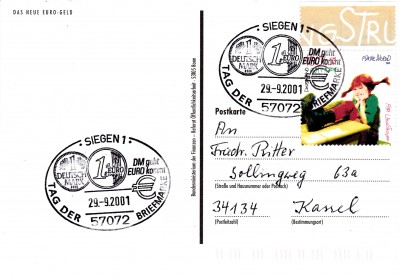 DAS NEUE EURO-GELD
· SIEGEN 1 ·
DEUTSCHE MARK
1 EURO
DM geht
EURO kommt
29.-9.2001
57072
TAG DER BRIEFMARKE
Bundesministerium der Finanzen – Referat Öffentlichkeitsarbeit 53003 Bonn
· SIEGEN 1 ·
1 EURO
DM geht
EURO kommt
29.-9.2001
57072
TAG DER BRIEFMARKE
NGSTRU
Postkarte
An
Friedr. Ritter
Sollingweg 63a
(Straße und Hausnummer oder Postfach)
34134 Kassel
(Postleitzahl) (Bestimmungsort)